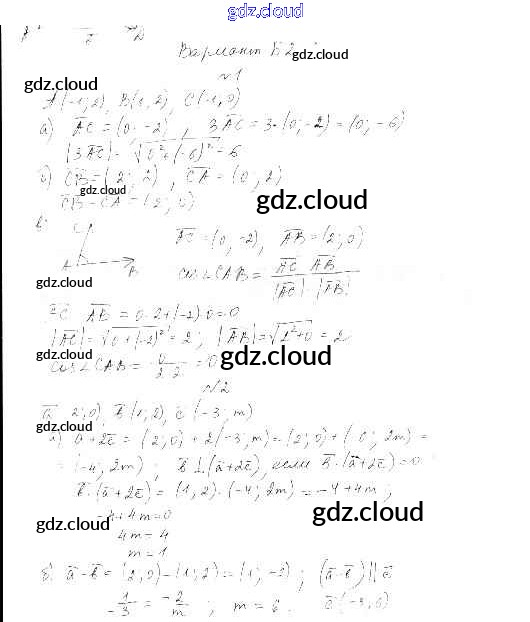 gdz.cloud
Вариант Б2
gdz.cloud
№1
gdz.cloud
A(-1; 2), B(1, 2), C(-1, 0)
а) AC = (0; -2), 3AC = 3·(0; -2) = (0; -6)
gdz.cloud
|3AC| = √0²+(-6)² = 6
б) CB = (2; 2), CA = (0; 2)
gdz.cloud
CB - CA = (2; 0)
gdz.cloud
в) C
AC = (0, -2), AB = (2; 0)
A B
cos∠CAB = AC AB / |AC|·|AB|
gdz.cloud
AC AB = 0·2+(-2)·0=0
gdz.cloud
|AC| = √0+(-2)² = 2; |AB| = √2²+0 = 2
gdz.cloud
gdz.cloud
cos∠CAB = 0/2·2 = 0
№2
a 2; 0), b(1; 2), c(-3; m)
gdz.cloud
а) a+2c = (2; 0) + 2(-3; m) = (2; 0) + ( 6; 2m) =
= (-4; 2m); b⊥(a+2c), если b·(a+2c)=0
b·(a+2c) = (1, 2)·(-4; 2m) = -4+4m;
gdz.cloud
gdz.cloud
-4+4m=0
4m=4
m=1
б) a-b = (2, 0)-(1; 2) = (1; -2); (a-b) || c
gdz.cloud
1/-3 = -2/m; m = 6. c(-3, 6)